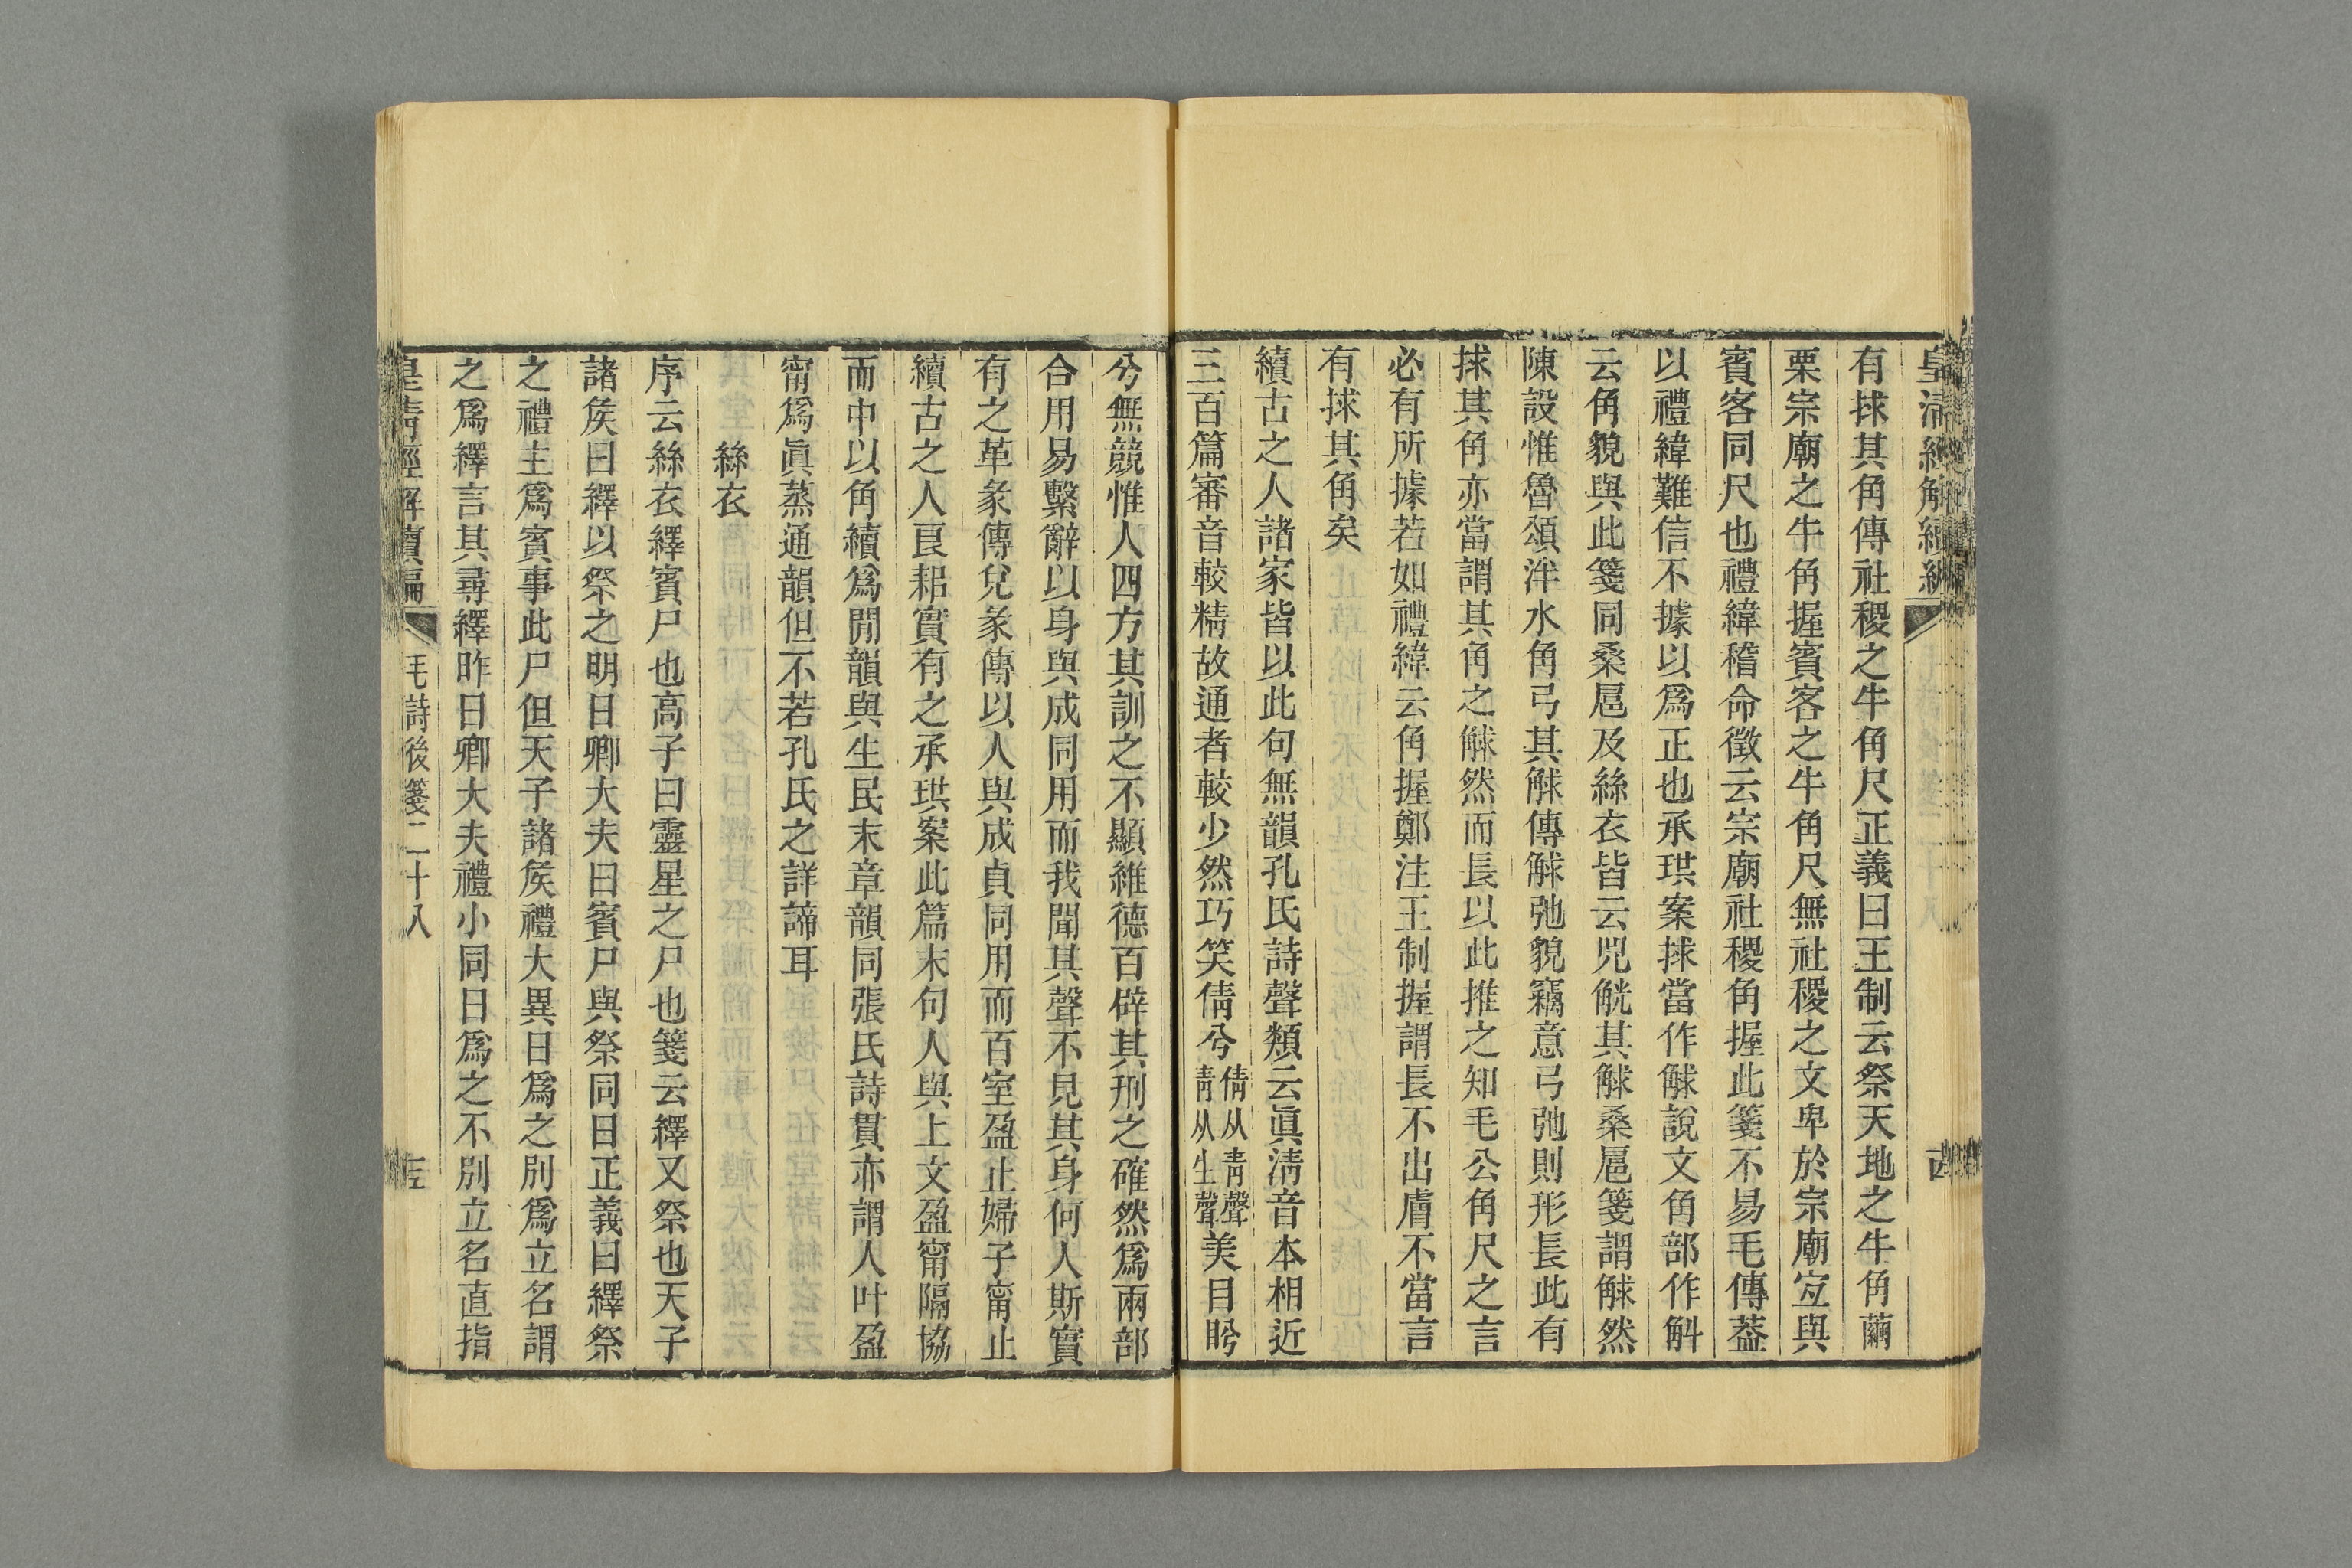 皇清經解續編
有捄其角傳社稷之牛角尺正義曰王制云祭天地之牛角繭
栗宗廟之牛角握賓客之牛角尺無社稷之文卑於宗廟宐與
賓客同尺也禮緯稽命徵云宗廟社稷角握此箋不易毛傳葢
以禮緯難信不據以爲正也承珙案捄當作觩說文角部作斛
云角貌與此箋同桑扈及絲衣皆云兕觥其觩桑扈箋謂觩然
陳設惟魯頌泮水角弓其觩傳觩弛貌竊意弓弛則形長此有
捄其角亦當謂其角之觩然而長以此推之知毛公角尺之言
必有所據若如禮緯云角握鄭注王制握謂長不出膚不當言
有捄其角矣
續古之人諸家皆以此句無韻孔氏詩聲類云眞淸音本相近
三百篇審音較精故通者較少然巧笑倩兮倩从靑聲靑从生聲美目盻
兮無競惟人四方其訓之不顯維德百辟其刑之確然爲兩部
合用易繫辭以身與成同用而我聞其聲不見其身何人斯實
有之革彖傳兌彖傳以人與成貞同用而百室盈止婦子甯止
續古之人良耜實有之承珙案此篇末句人與上文盈甯隔協
而中以角續爲閒韻與生民末章韻同張氏詩貫亦謂人叶盈
甯爲眞蒸通韻但不若孔氏之詳諦耳
絲衣
序云絲衣繹賓尸也高子曰靈星之尸也箋云繹又祭也天子
諸矦曰繹以祭之明日卿大夫曰賓尸與祭同日正義曰繹祭
之禮主爲賓事此尸但天子諸矦禮大異日爲之別爲立名謂
之爲繹言其尋繹昨日卿大夫禮小同日爲之不別立名直指
皇淸經解續編
毛詩後箋二十八